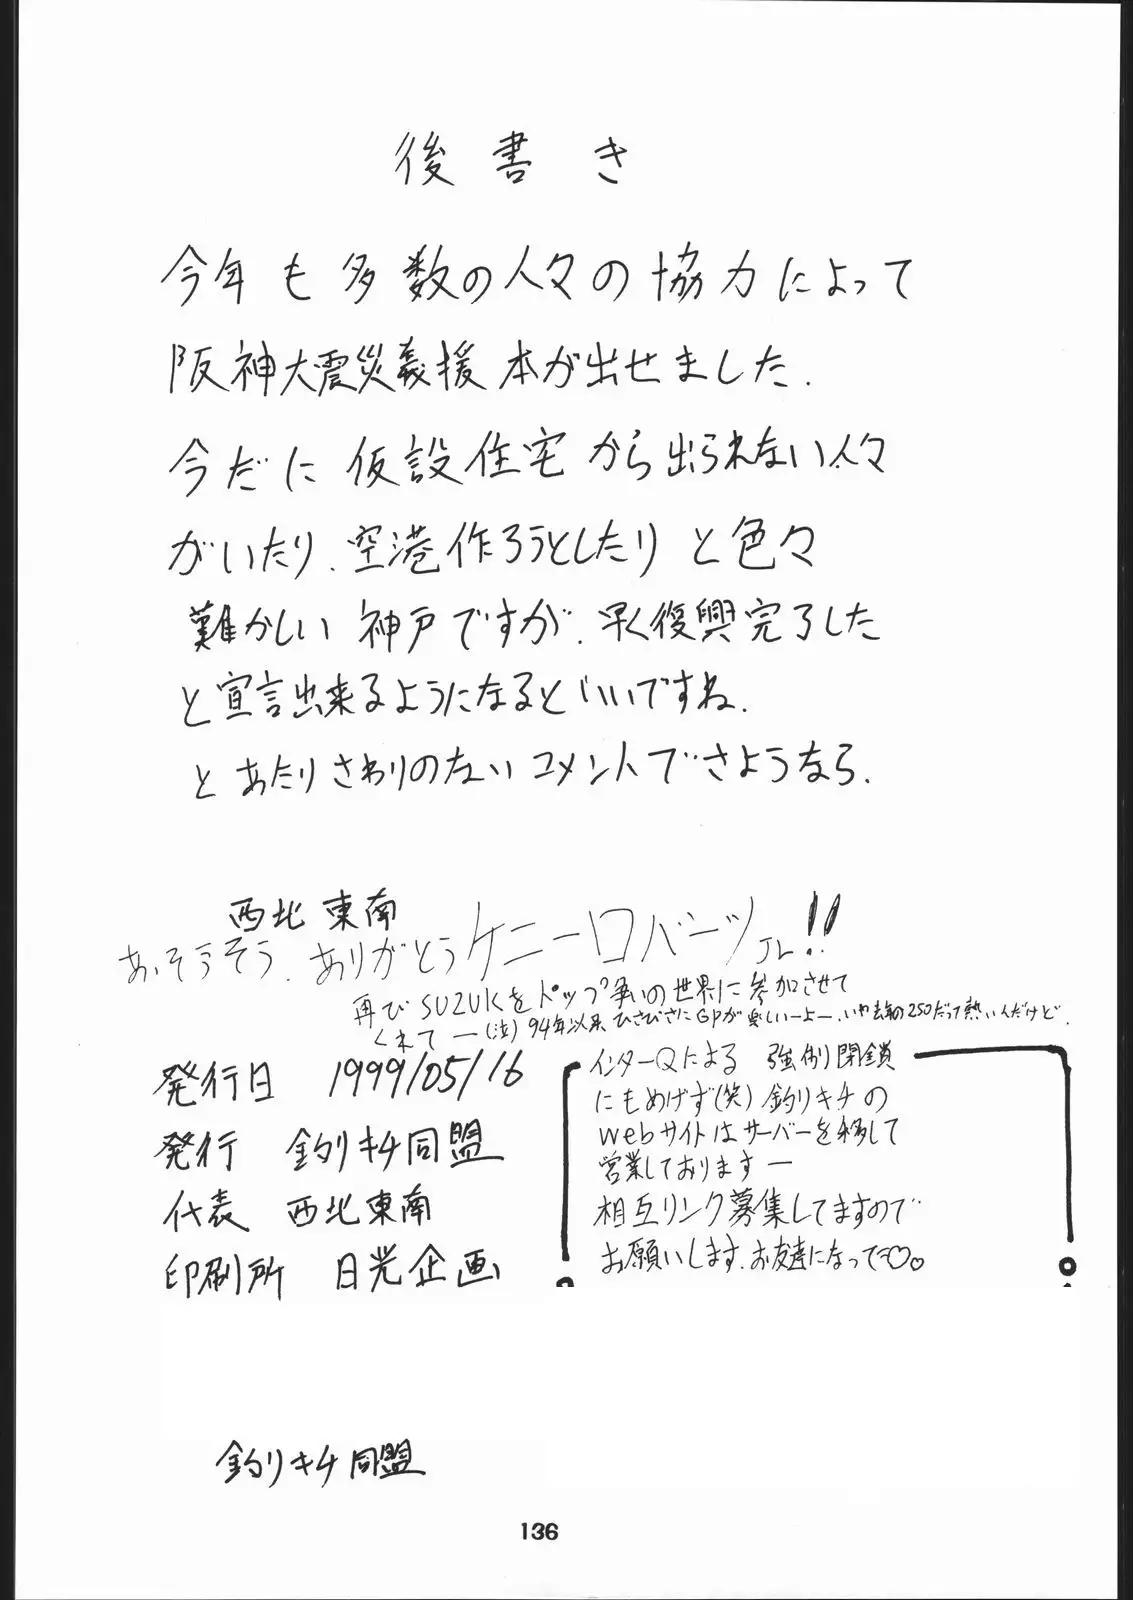 後書き
今年も多数の人々の協力によって
阪神大震災義援本が出せました.
今だに仮設住宅から出られない人々
がいたり.空港作ろうとしたりと色々
難かしい神戸ですが.早く復興完了した
と宣言出来るようになるといいですね.
とあたりさわりのないコメントでさようなら.
西北東南
あ、そうそう.ありがとうケニーロバーツJr!!
再びSUZUKIをトップ争いの世界に参加させて
くれてー(泣)94年以来ひさびさにGPが楽しいーよー.いや去年の250だって熱いんだけど.
発行日 1999/05/16
発行 釣りキチ同盟
代表 西北東南
印刷所 日光企画
インターQによる 強制閉鎖
にもめげず(笑)釣りキチの
webサイトはサーバーを移して
営業しておりますー
相互リンク募集してますので
お願いします.お友達になって♡♡
釣りキチ同盟
136